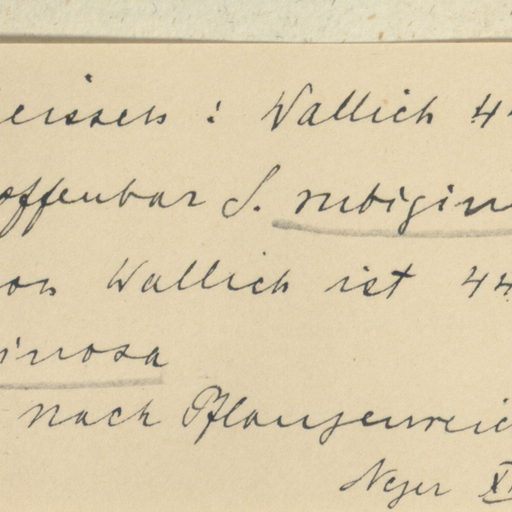 eissen : Wallich 44
offenbar S. rubigin
on Wallich ist 44
inosa
nach Pflanzenreic
Neger XI